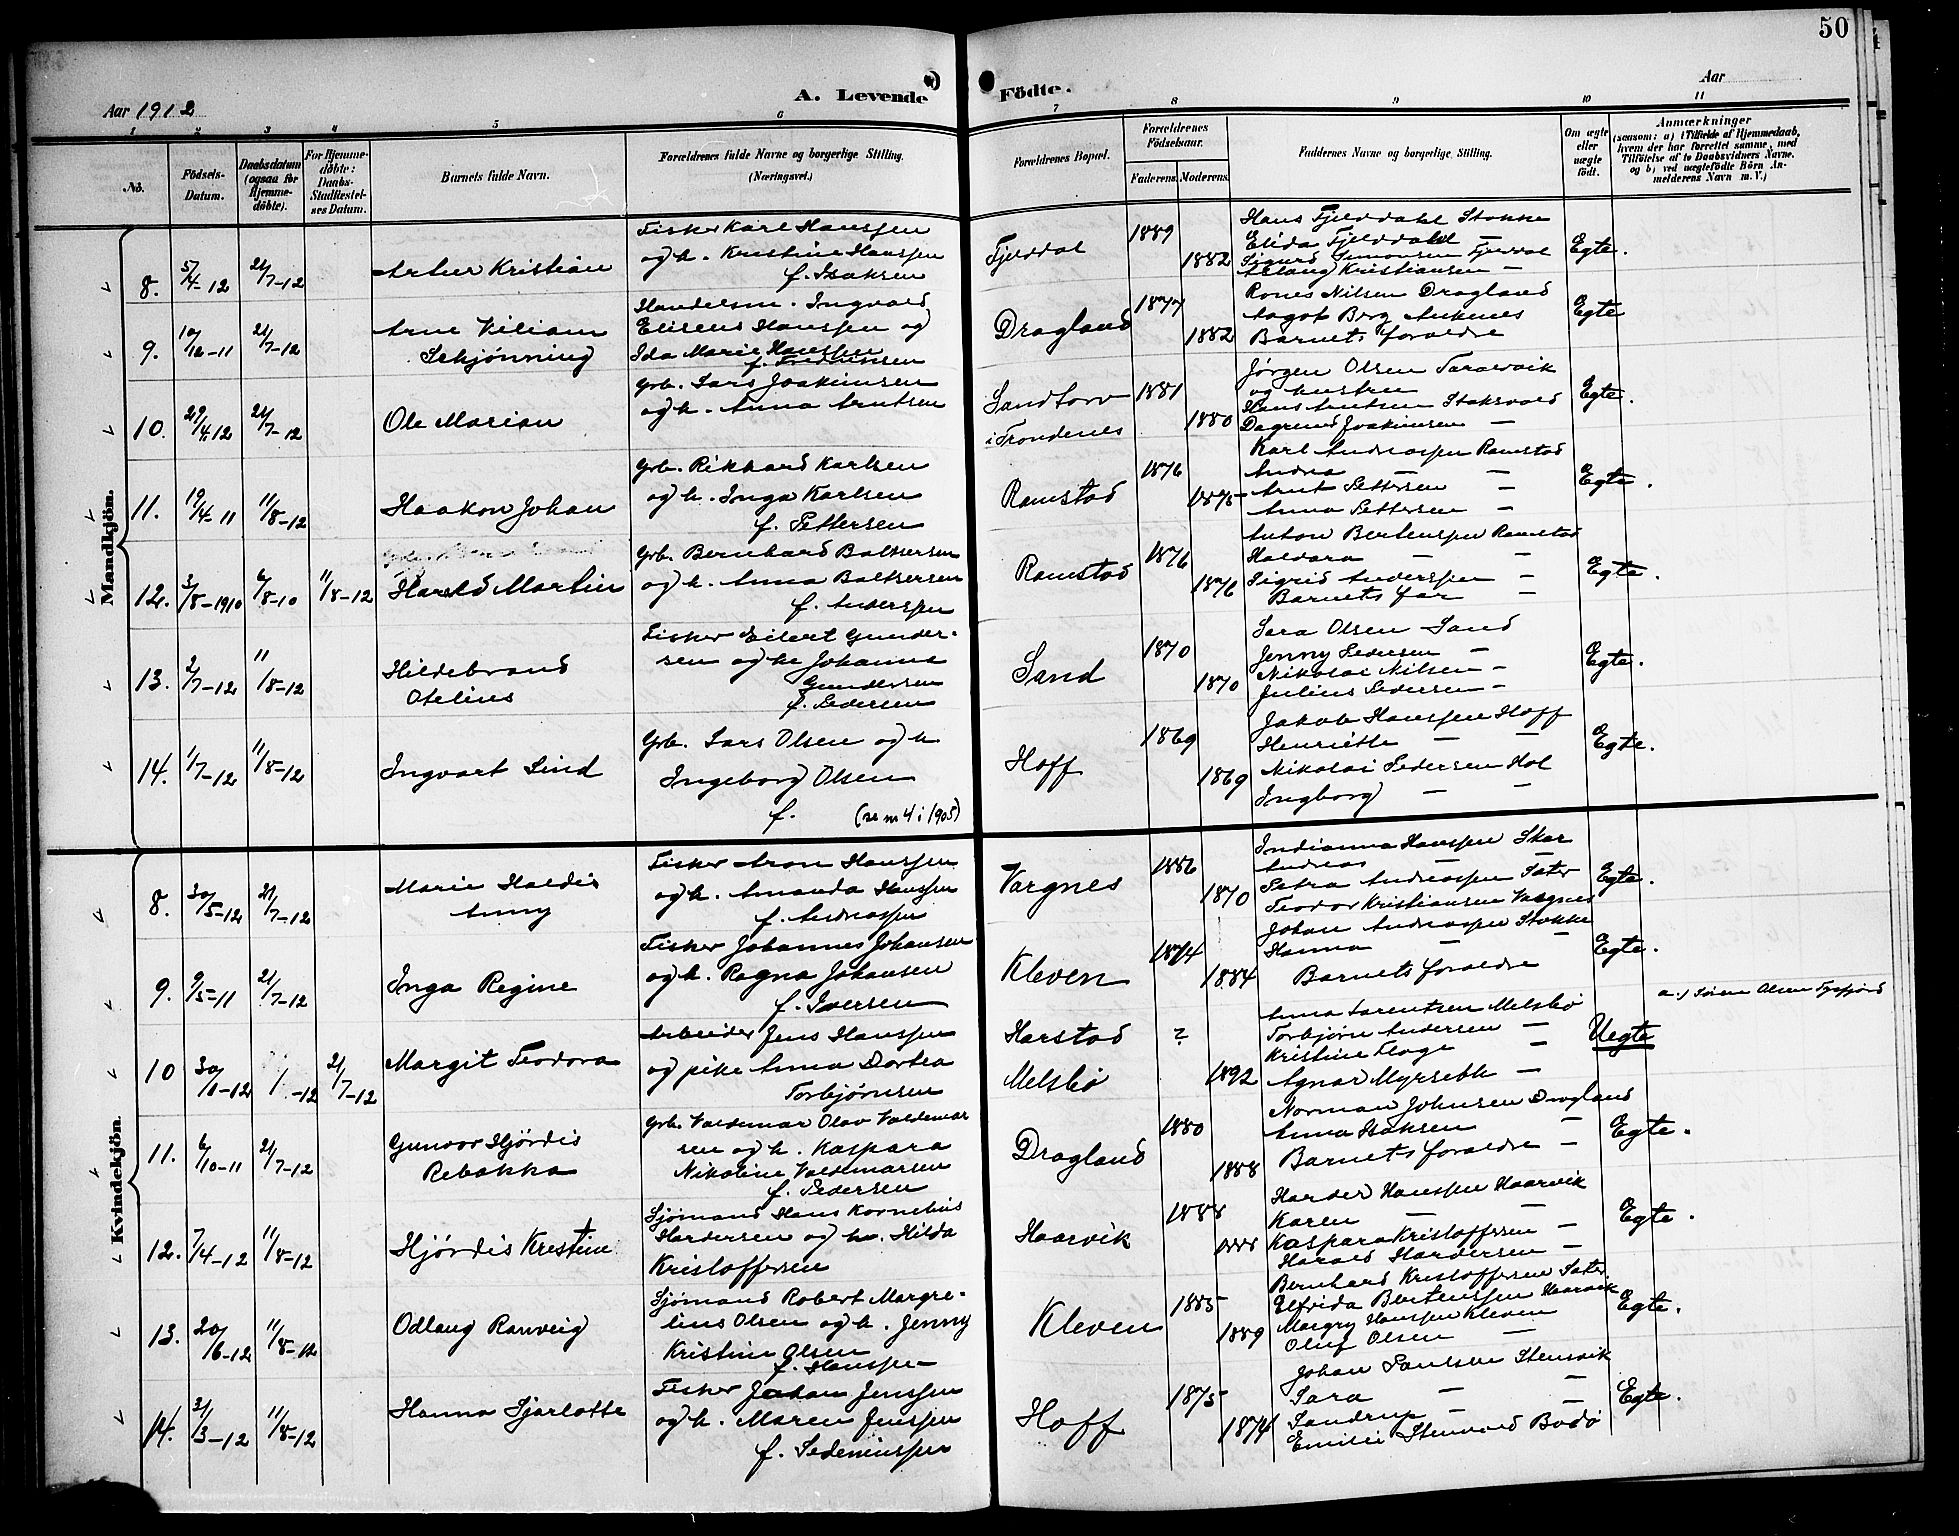 50
Aar 1912
A. Levende
Födte.
Aar
1 2 3 4 5 6
7 8 9 10 11
No.
Födsels-Datum.
Daabsdatum (ogsaa for Hjemmedöbte).
For Hjemmedöbte: Daabs-Stadfæstelses Datum.
Barnets fulde Navn.
Forældrenes fulde Navne og borgerlige Stilling.
(Næringsvei.)
Forældrenes Bopæl.
Forældrenes Födselsaar.
Faderens. Moderens.
Faddernes Navne og borgerlige Stilling.
Om ægte eller uægte födt.
Anmærkninger
(saasom: a) i Tilfælde af Hjemmedaab,
hvem der har forrettet samme, med
Tilföielse af to Daabsvidners Navne,
og b) ved uægtefödte Börn An-
melderens Navn m. V.)
Mandkjön.
8. 5/4-12 21/7-12 Artur Kristian
Fisker Karl Hanssen
og h. Kristine Hanssen
f. Isaksen
Fjelddal 1889 1882
Hans Fjelddahl Stokke
Elida Fjelddahl —
Sigurd Simonsen Fjeldal
Aslaug Kristiansen —
Egte.
9. 10/12-11 21/7-12 Arne Viliam
Schjønning
Handelsm. Ingvald
Elisens Hanssen og
Ida Marie Hanssen
f. Fredriksen
Dragland 1877 1882
Rones Nilsen Dragland
Aagot Berg Ankenes
Barnets foraldre
Egte
10. 29/4 12 21/7-12 Ole Marian
Grb. Lars Joakimsen
og h. Anna Arntsen
Sandtorv
i Trondenes
1881 1880
Jørgen Olsen Taraldvik
og hustru
Hans Arntsen Stoksvold
Dagrund Joakimsen —
Egte.
11. 19/4-11 11/8-12 Haakon Johan
Grb. Rikkard Karlsen
og h. Inga Karlsen
f. Pettersen
Ramstad 1876 1875
Karl Andreassen Ramstad
Andrea — —
Arnt Pettersen —
Anna Pettersen —
Egte.
12. 3/8-1910 6/8-10 11/8-12 Harald Martin
Grb. Bernhard Baltsersen
og h. Anna Baltsersen
f. Anderssen
Ramstad 1876 1876
Anton Bertenssen Ramstad
Haldara — —
Sigrid Anderssen —
Barnets far —
Egte.
13. 2/7-12 11/8-12 Hildebrand
Otelius
Fisker Eilert Gunder-
sen og h. Johanne
Gundersen
f. Pedersen
Sand 1870 1870
Sara Olsen Sand
Jenny Pedersen —
Nikolai Nilsen —
Julius Pedersen —
Egte.
14. 1/7-12 11/8-12 Ingvart Lind
Grb. Lars Olsen og h
Ingeborg Olsen
f. (se nr 4 i 1905)
Hoff 1869 1869
Jakob Hanssen Hoff
Henriette — —
Nikolai Pedersen Hol
Ingborg — —
Egte.
Kvindekjön.
8. 30/5-12 21/7-12 Marie Haldis
Anny
Fisker Aron Hanssen
og h. Amanda Hanssen
f. Andreassen
Vargnes 1886 1870
Indianna Hanssen Skar
Andreas — —
Petra Andreassen Sater
Teodor Kristiansen Vargnes
Egte.
9. 9/5-11 21/7-12 Inga Regine
Fisker Johannes Johansen
og h. Ragna Johansen
f. Iversen
Kleven 1874 1884
Johan Andreassen Stokke
Hanna — —
Barnets foraldre
Egte.
10 30/1-12 1/ -12 21/7-12 Margit Teodora
Arbeider Jens Hanssen
og pike Anna Dortea
Torbjørnsen
Harstad ?
Melsbø 1892
Anna Larentsen Melsbø
Torbjørn Andersen —
Kristine Floge —
Agnar Myrsetk —
Uegte
a.) Søren Olsen Tysfjord
11. 6/10-11 21/7-12 Gunvor Hjørdis
Rebakka
Grb. Valdemar Olav Valdemar
sen og h. Kaspara
Nikoline Valdemarsen
f. Pedersen
Dragland 1880 1888
Norman Johnsen Dragland
Anna Isaksen —
Barnets foraldre —
Egte.
12. 7/4-12 11/8-12 Hjørdis Kristine
Sjømand Hans Kornelius
Hardersen og h. Hilda
Kristoffersen
Haarvik 1888 1888
Harder Hanssen Haarvik
Karen — —
Kaspara Kristoffersen —
Harald Hardersen —
Egte.
13. 20/6-12 11/8-12 Odlaug Ranveig
Sjømand Robert Margre-
lius Olsen og h. Jenny
Kristine Olsen
f. Hanssen
Kleven 1885 1889
Bernhard Kristoffersen Sater
Elfrida Bertenssen Haarvik
Margry Hanssen Kleven
Oluf Olsen —
Egte.
14. 21/3-12 11/8-12 Hanna Sjarlotte
Fisker Johan Jenssen
og h. Maren Jenssen
f. Sedeniussen
Hoff 1875 1874
Johan Paulsen Stensvik
Sara — —
Sandrup —
Emilie Stenvold Bodø
Egte.